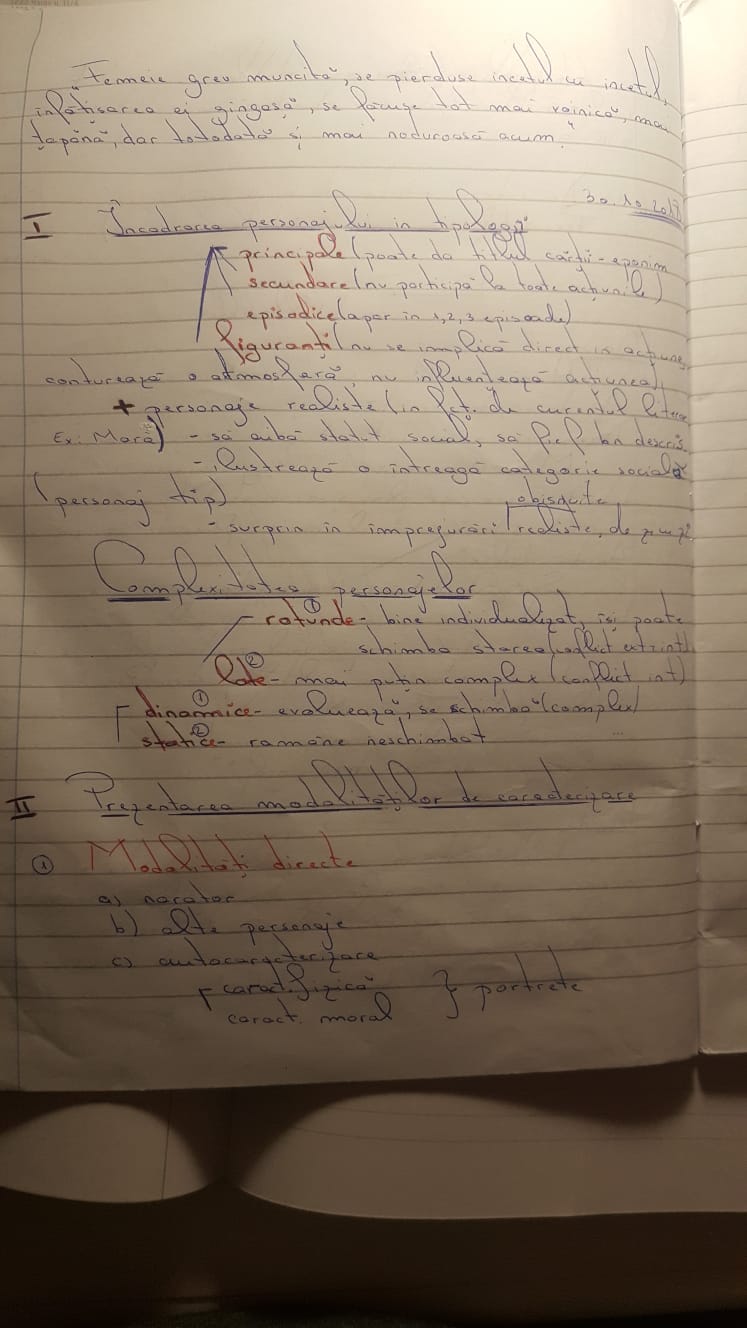 "Femeie greu muncită, se pierduse incetul cu incetul,
infătisarea ei gingasă, se făcuse tot mai voinică, mai
țapănă, dar totodată și mai noduroasă acum."
30.10.2018
I Încadrarea personajului in tipologii
principale (poate da titlul cărții - eponim
secundare (nu participă la toate acțiunile)
episodice (apar in 1, 2, 3 episoade)
figuranți (nu se implică direct in acțiune,
conturează o atmosferă, nu influențează acțiunea)
+ personaje realiste (in fct. de curentul literar
Ex: Mara) - să aibă statut social, să fie bn descris
- ilustrează o intreagă categorie socială
(personaj tip) obisnuite
- surprin in impregurări realiste, de zi cu zi
Complexitatea personajelor
① rotunde - bine individualizat, își poate
schimba starea (conflict ext, int)
② late - mai puțin complex (conflict int)
① dinamice - evoluează, se schimbă (complex)
② statice - ramâne neschimbat
II Prezentarea modalităților de caracterizare
① Modalități directe
a) narator
b) alte personaje
c) autocaracterizare
caract. fizică } portrete
caract. moral